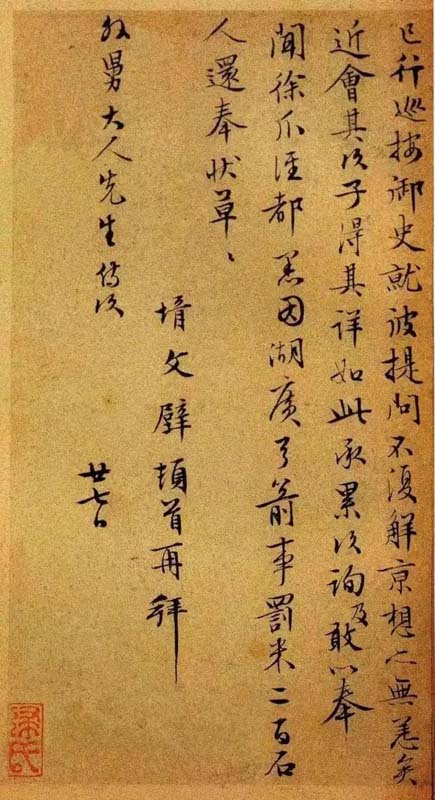 已行巡按御史就被提问不復解京想亦無恙矣
近會其次子得其詳如此承累次詢及敢以奉
聞徐爪涯都憲因湖廣弓箭事罰米二百石
人還奉狀草〻
壻文壁頓首再拜
外舅大人先生侍次
廿七日